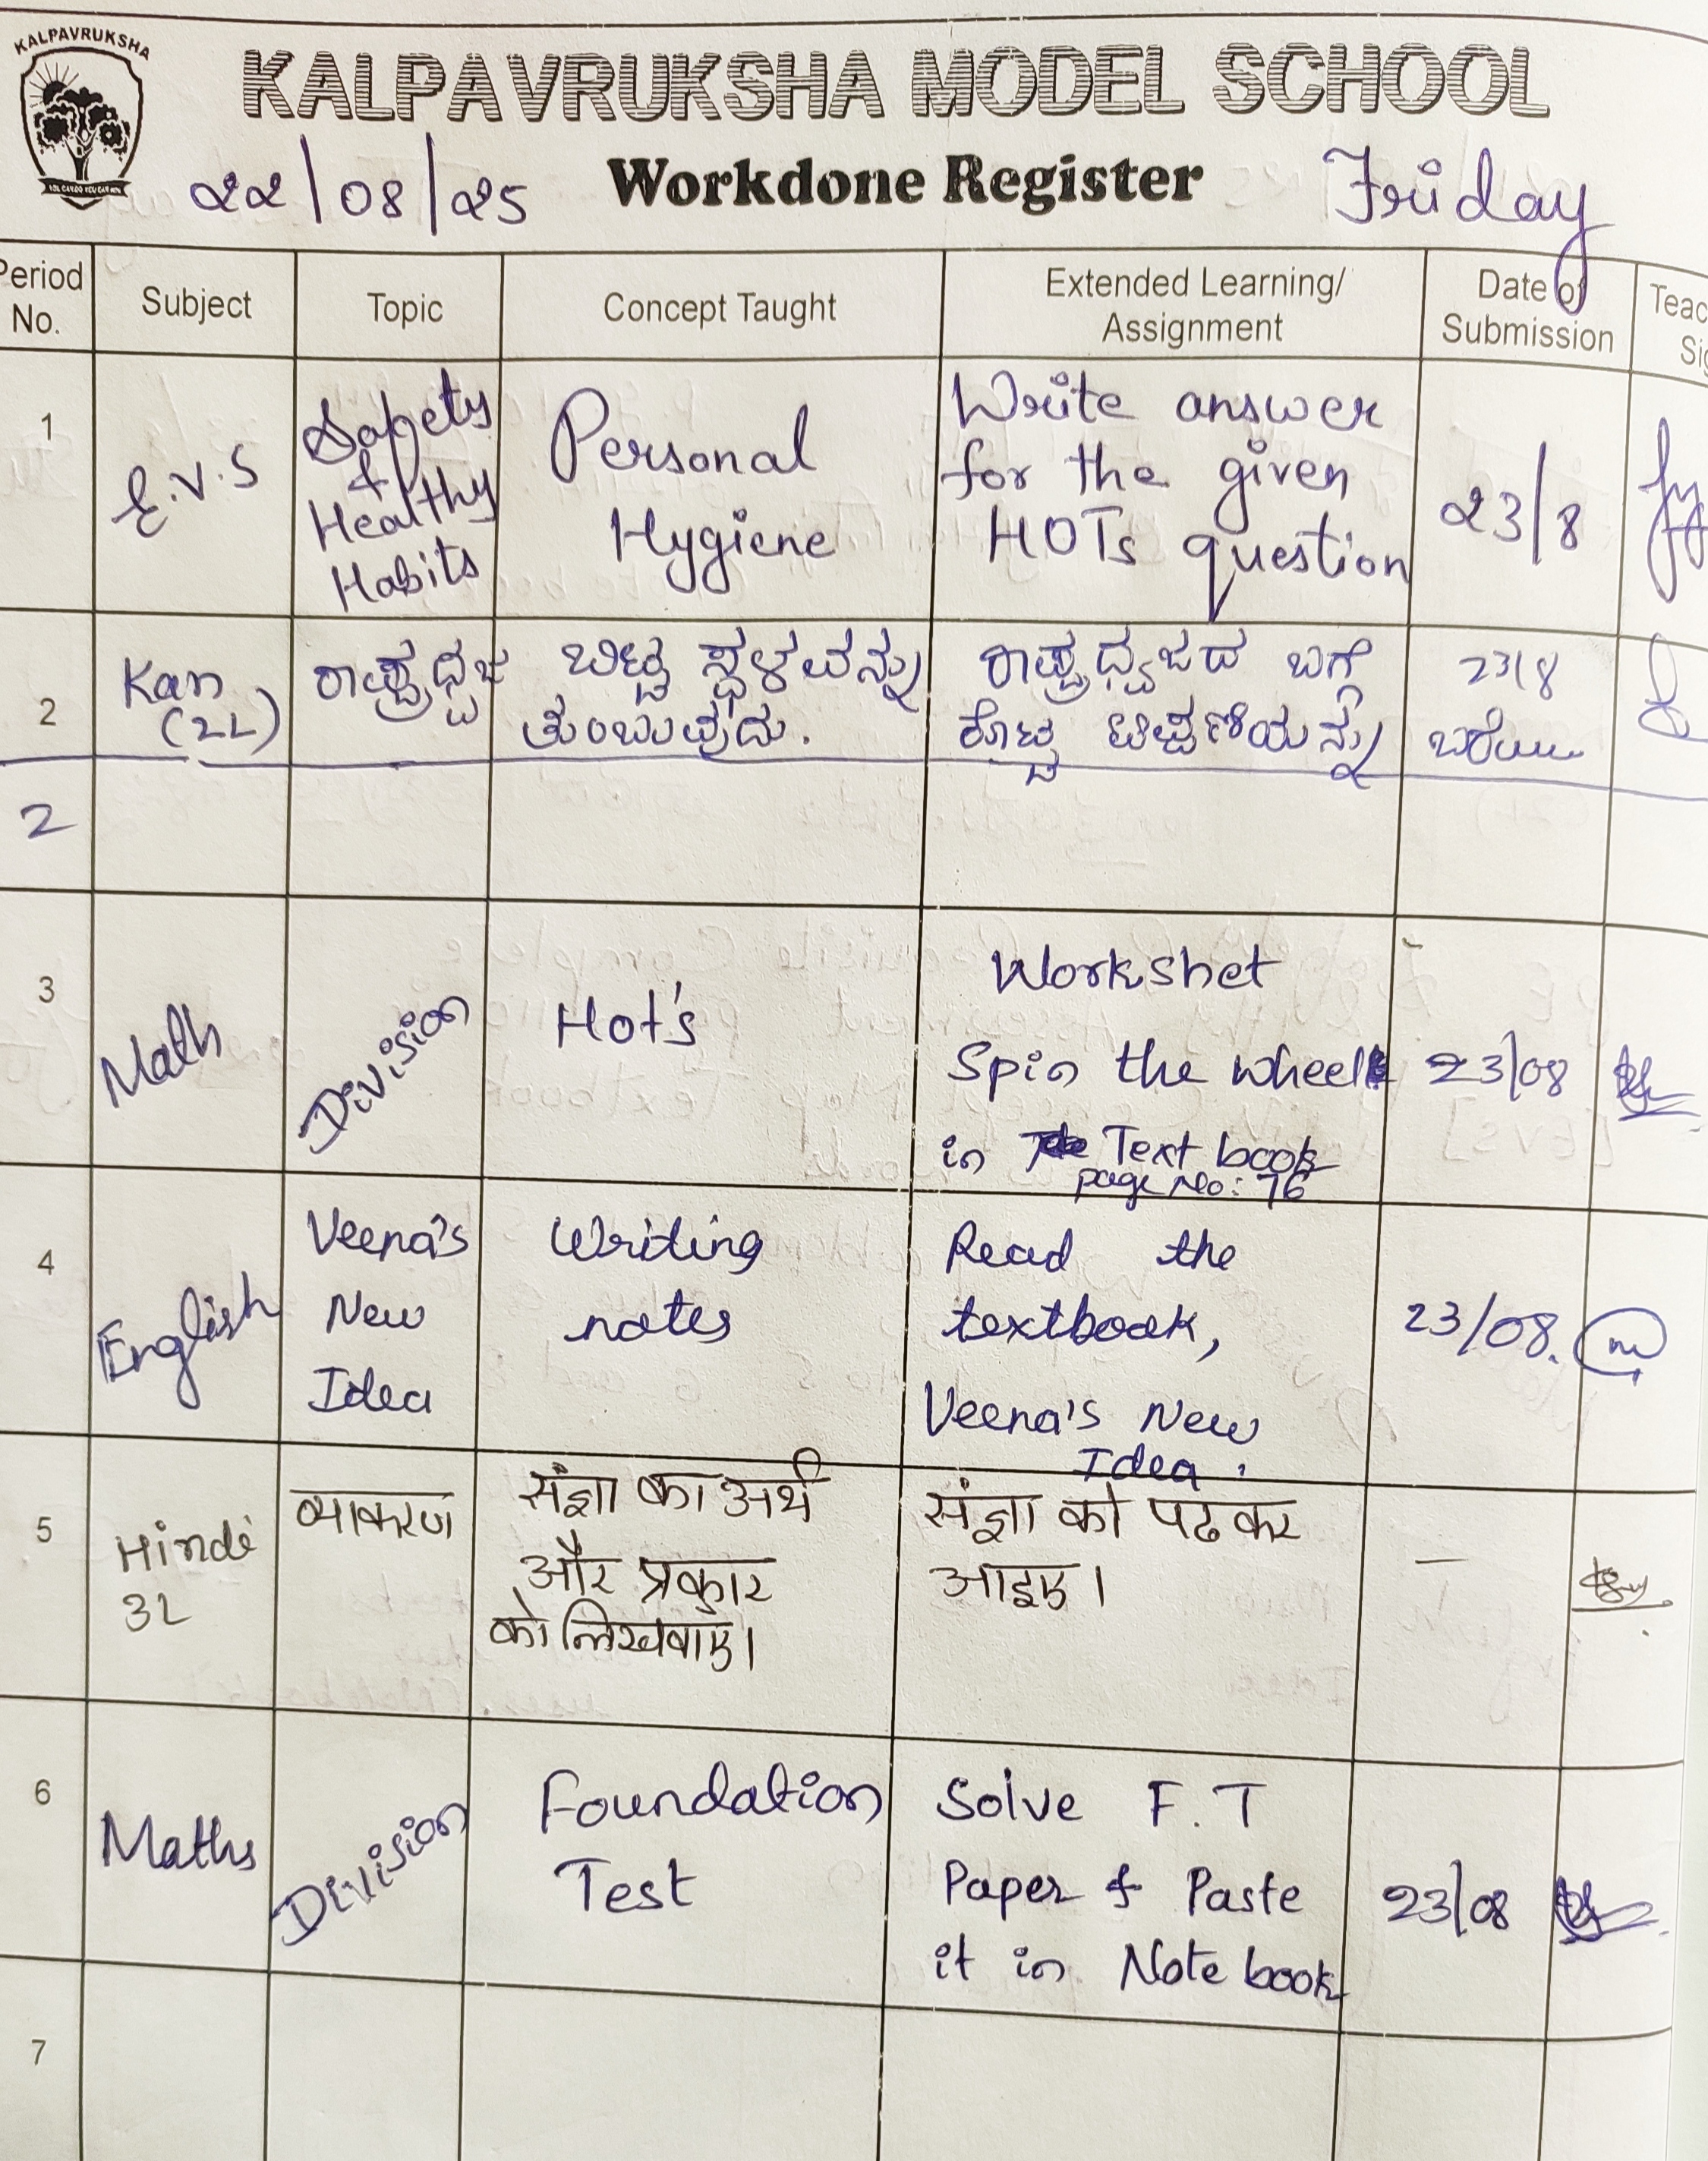 KALPAVRUKSHA
KALPAVRUKSHA MODEL SCHOOL
22/08/25 Workdone Register Friday
Period No. Subject Topic Concept Taught Extended Learning/ Assignment Date of Submission
1
E.V.S
Safety
&
Healthy
Habits
Personal
Hygiene
Write answer
for the given
HOTs question
23/8
2
Kan
(2L)
ರಾಷ್ಟ್ರಧ್ವಜ
ಬಿಟ್ಟ ಸ್ಥಳವನ್ನು
ತುಂಬುವುದು.
ರಾಷ್ಟ್ರಧ್ವಜದ ಬಗ್ಗೆ
ಕೊಟ್ಟ ಟಿಪ್ಪಣಿಯನ್ನು
23/8
2
3
Math
Division
Hot's
Workshet
Spin the wheel
in Text book
page No: 76
23/08
4
English
Veena's
New
Idea
Writing
notes
Read the
textbook,
Veena's New
Idea.
23/08.
5
Hindi
3L
व्याकरण
संज्ञा का अर्थ
और प्रकार
को लिखवाए।
संज्ञा को पढकर
आइए।
—
6
Maths
Division
Foundation
Test
Solve F.T
Paper & Paste
it in Note book
23/08
7